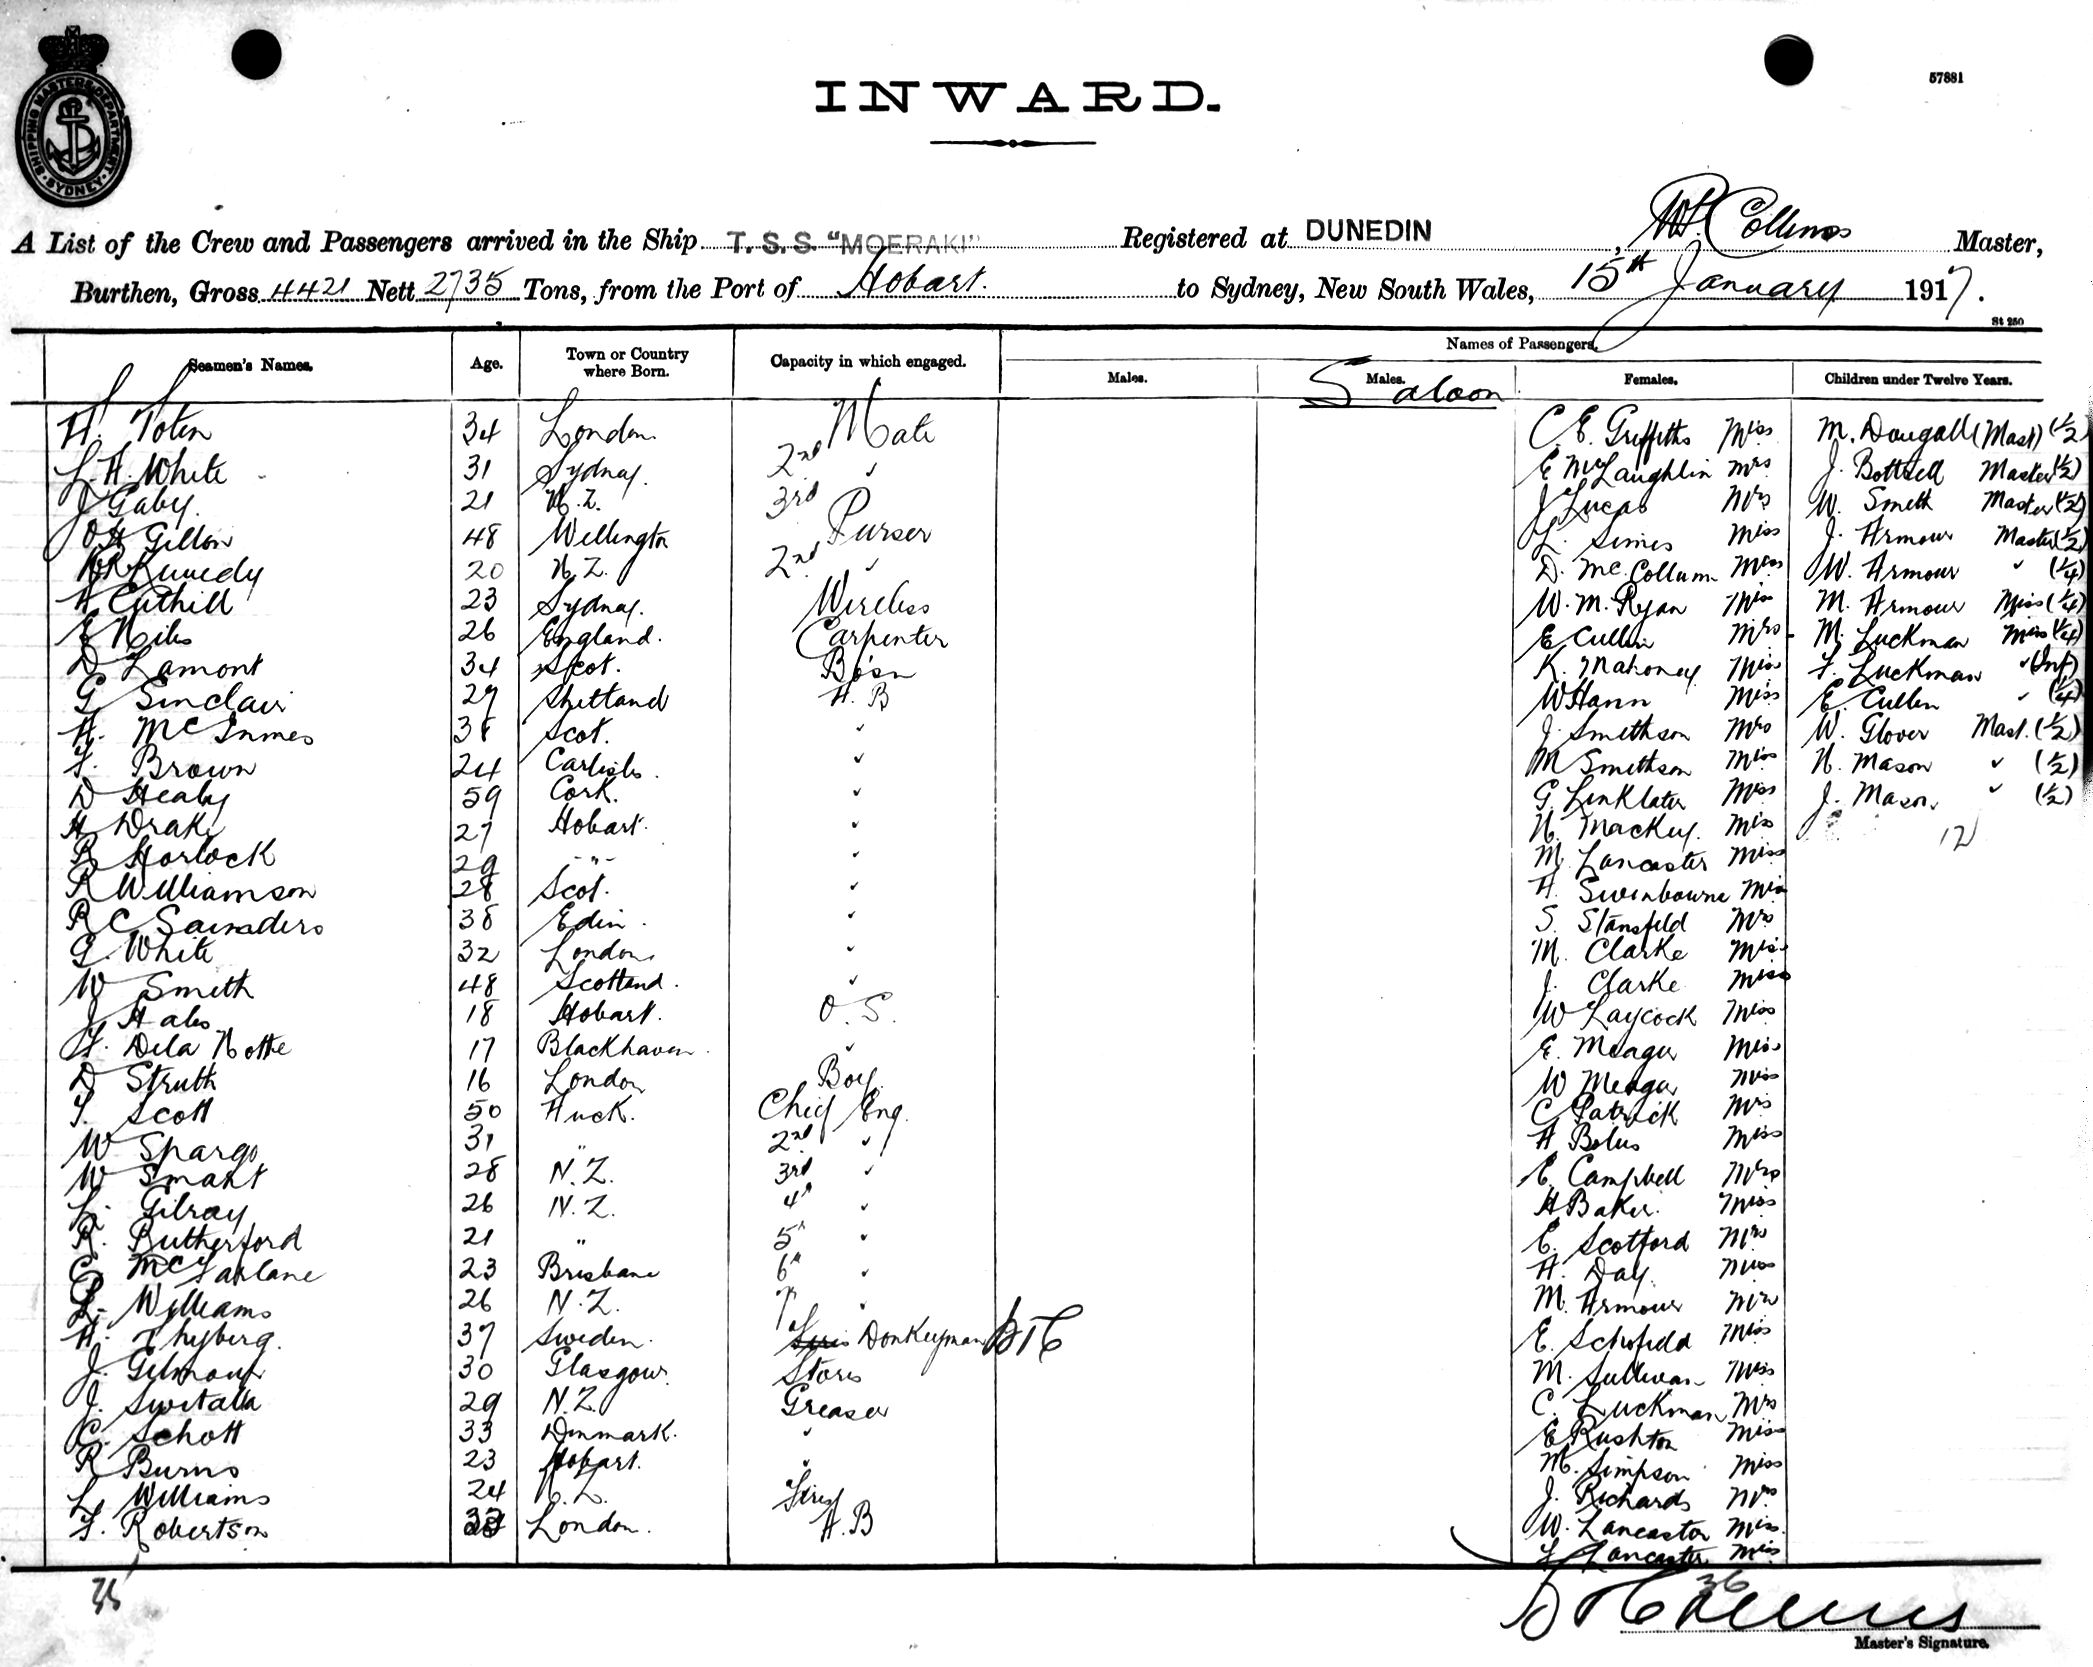 SHIPPING MASTERS DEPARTMENT SYDNEY
57881
INWARD.
A List of the Crew and Passengers arrived in the Ship T.S.S. "MOERAKI" Registered at DUNEDIN, Collins Master,
Burthen, Gross 4421 Nett 2735 Tons, from the Port of Hobart. to Sydney, New South Wales, 15th January 1917.
St 250
Seamen's Names. Age. Town or Country where Born. Capacity in which engaged. Names of Passengers.
Males. Males. Females. Children under Twelve Years.
Saloon
H. Toten 34 London Mate C. E. Griffiths Miss M. Dougall (Mast) (1/2)
L. H. White 31 Sydney. 2nd " E McLaughlin Mrs J. Bottrell Master (1/2)
J Gaby. 21 N.Z. 3rd J Lucas Mrs W. Smith Master (1/2)
Gillon 48 Wellington Purser L. Simes Miss J. Armour Master (1/2)
Kennedy 20 N.Z. 2nd " D. McCollum Miss W. Armour " (1/4)
A Cuthill 23 Sydney. Wireless W. M. Ryan Miss M. Armour Miss (1/4)
E Niles 26 England. Carpenter E Cullen Mrs M. Luckman Miss (1/4)
D Lamont 34 Scot. Bosn K. Mahoney Miss F. Luckman " (Inf)
G Sinclair 29 Shetland A.B W Hann Miss E. Cullen " (1/4)
A. McInnes 38 Scot. " J. Smithson Mrs W. Glover Mast. (1/2)
F. Brown 24 Carlisle. " M Smithson Miss N. Mason " (1/2)
D Healy 59 Cork. " G. Linklater Miss J. Mason " (1/2)
H Drake 27 Hobart. " N. Mackey. Miss 12
R Horlock 29 " " M. Lancaster Miss
R Williamson 28 Scot. " A. Swinbourne Miss
R C Saunders 38 Edin. " S. Stansfeld Mrs
G. White 32 London. " M. Clarke Miss
W Smith 48 Scotland. " J. Clarke Miss
J Hales 18 Hobart. O.S. W Laycock Miss
F. Dela Nothe 17 Blackhaven. " E. Meager Miss
D Struth 16 London Boy. W Meager Miss
T. Scott 50 Chief Eng. C Patrick Mrs
W Spargo 31 " 2nd " A Bolus Miss
W Smart 28 N.Z. 3rd " E. Campbell Mrs
L. Gilray 26 N.Z. 4th " A Baker. Miss
R. Rutherford 21 " 5th " E. Scotford Mrs
C. McFarlane 23 Brisbane 6th " A. Day. Miss
L. Williams 26 N.Z. 7th " M. Armour Mrs
A. Thyberg. 37 Sweden. Donkeyman E. Schofield Miss
J. Gilmour 30 Glasgow. Stores M. Sullivan Miss
J. Switalla 29 N.Z. Greaser C. Luckman Mrs
C. Schott 33 Denmark. " E Rushton Miss
R Burns 23 Hobart. " M. Simpson Miss
L. Williams 24 N.Z. Fires J. Richards Mrs
F. Robertson London. A.B W. Lancaster Miss.
Lancaster Miss
35 36
Collins
Master's Signature.